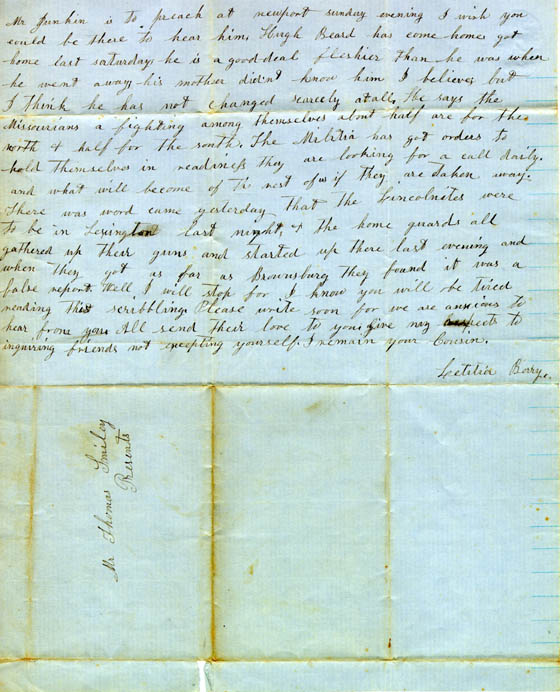 Mr Junkin is to preach at newport sunday evening I wish you
could be there to hear him, Hugh Beard has come home, got
home last saturday, he is a good deal fleshier than he was when
he went away his mother didn't know him I believe, but
I think he has not changed scarcely atall, He says the
Missourians a fighting among themselves about half are for the
north & half for the south. The Militia has got orders to
hold themselves in readiness they are looking for a call daily.
and what will become of the rest of us if they are taken away.
There was word came yesterday that the Lincolnites were
to be in Lexington last night, & the home guards all
gathered up their guns and started up there last evening and
when they got as far as Brownsburg they found it was a
false report. Well I will stop for I know you will be tired
reading this scribbling. Please write soon for we are anxious to
hear from you. All send their love to you, Give my respects to
inquiring friends not excepting yourself. I remain your Cousin.
Letitia Berry.
Mr Thomas Smiley
Presents